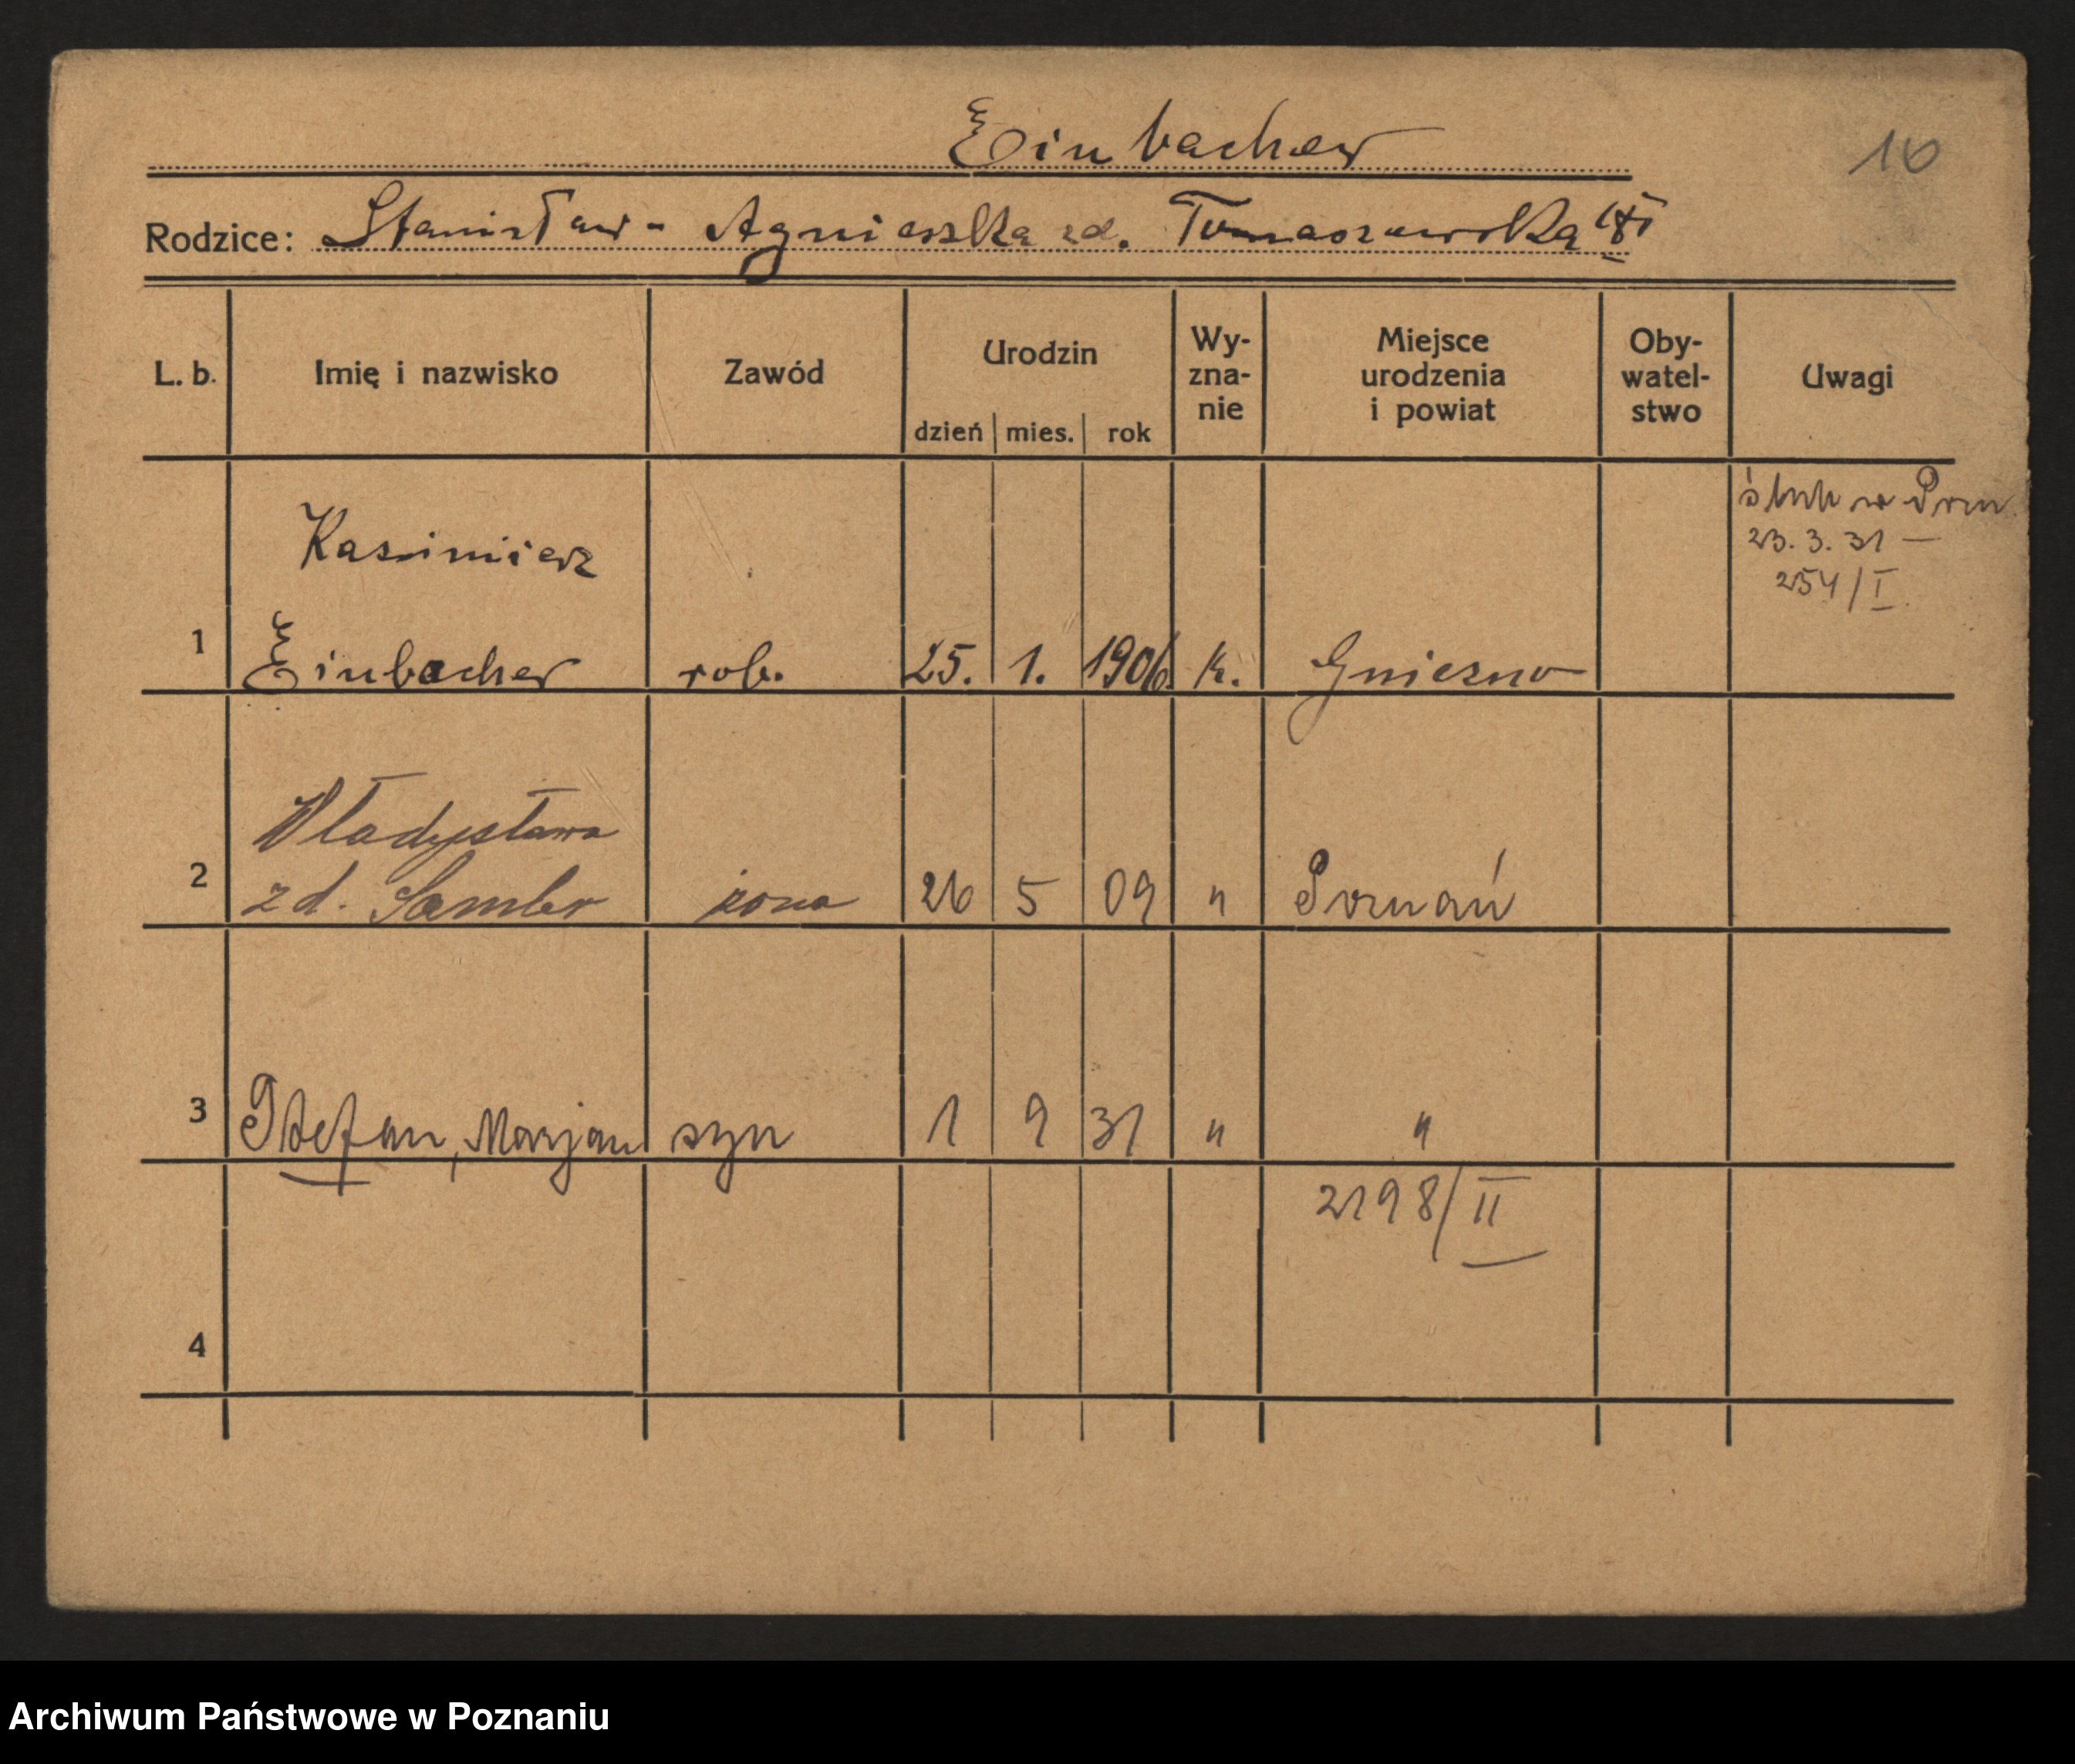 Einbacher
16
Rodzice: Stanisław - Agnieszka zd. Tomaszewska
L. b. Imię i nazwisko Zawód Urodzin dzień mies. rok Wy- zna- nie Miejsce urodzenia i powiat Oby- watel- stwo Uwagi
ślub w Pozn.
23. 3. 31 —
254/I.
Kazimierz
1 Einbacher rob. 25. 1. 1906 k. Gniezno
Władysława
2 zd. Sambor żona 26 5 09 " Poznań
3 Stefan, Marjan syn 1 9 31 " "
2198/II
4
Archiwum Państwowe w Poznaniu